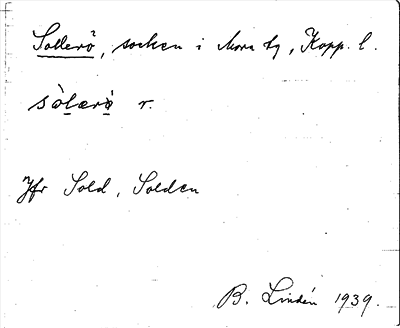 Sollerö, socken i Mora tg, Kopp. l.
sòlærò r.
Jfr Sold, Solden
B. Lindén 1939.